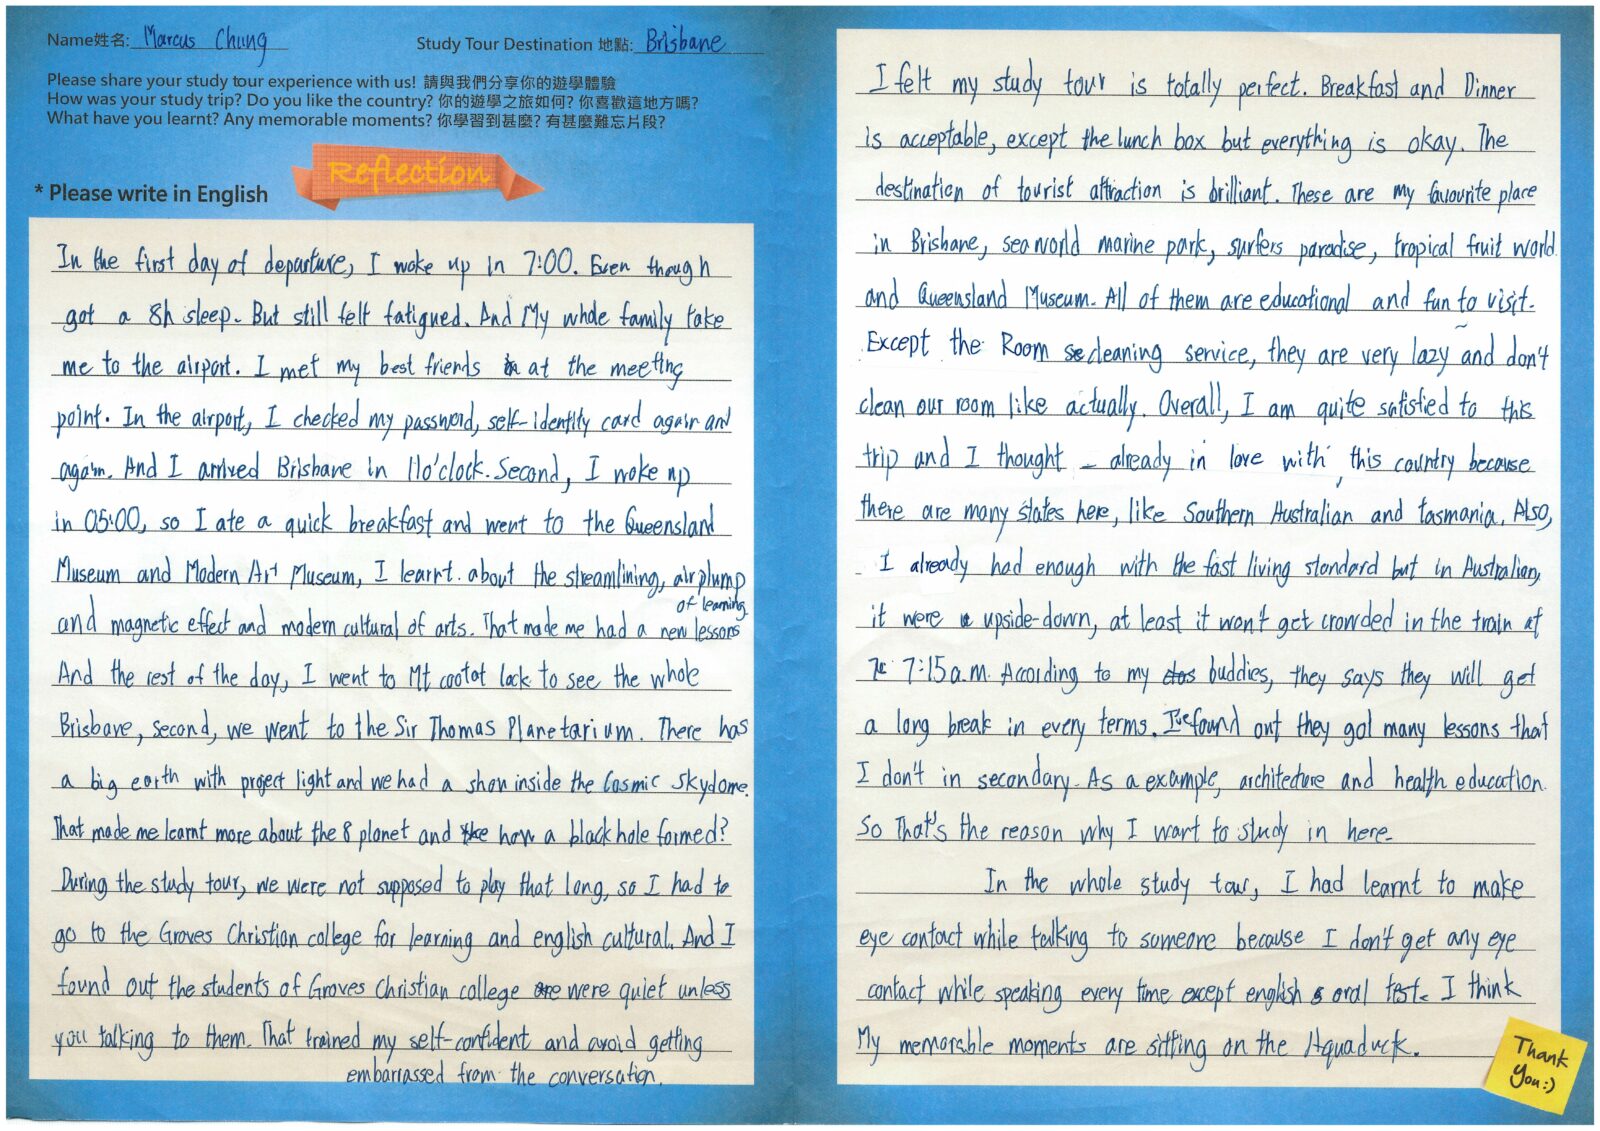 Name姓名: Marcus Chung
Study Tour Destination 地點: Brisbane
Please share your study tour experience with us! 請與我們分享你的遊學體驗
How was your study trip? Do you like the country? 你的遊學之旅如何? 你喜歡這地方嗎?
What have you learnt? Any memorable moments? 你學習到甚麼? 有甚麼難忘片段?
Reflection
* Please write in English
In the first day of departure, I woke up in 7:00. Even though
got a 8h sleep. But still felt fatigued. And My whole family take
me to the airport. I met my best friends at the meeting
point. In the airport, I checked my password, self-identity card again and
again. And I arrived Brisbane in 11o'clock. Second, I woke up
in 05:00, so I ate a quick breakfast and went to the Queensland
Museum and Modern Art Museum, I learnt about the streamlining, air plump
of learning
and magnetic effect and modern cultural of arts. That made me had a new lessons
And the rest of the day, I went to Mt cootot lock to see the whole
Brisbane, second, we went to the Sir Thomas Planetarium. There has
a big earth with project light and we had a show inside the Cosmic Skydome.
That made me learnt more about the 8 planet and how a black hole formed?
During the study tour, we were not supposed to play that long, so I had to
go to the Groves Christian college for learning and english cultural. And I
found out the students of Groves Christian college were quiet unless
you talking to them. That trained my self-confident and avoid getting
embarrassed from the conversation.
I felt my study tour is totally perfect. Breakfast and Dinner
is acceptable, except the lunch box but everything is okay. The
destination of tourist attraction is brilliant. These are my favourite place
in Brisbane, seaworld marine park, surfers paradise, tropical fruit world
and Queensland Museum. All of them are educational and fun to visit.
Except the Room cleaning service, they are very lazy and don't
clean our room like actually. Overall, I am quite satisfied to this
trip and I thought already in love with this country because
there are many states here, like Southern Australian and tasmania. Also,
I already had enough with the fast living standard but in Australian,
it were upside-down, at least it won't get crowded in the train at
7:15a.m. Accoding to my buddies, they says they will get
a long break in every terms. I've found out they got many lessons that
I don't in secondary. As a example, architecture and health education.
So That's the reason why I want to study in here.
In the whole study tour, I had learnt to make
eye contact while talking to someone because I don't get any eye
contact while speaking every time except english oral test. I think
My memorable moments are sitting on the Aquaduck.
Thank
You:)